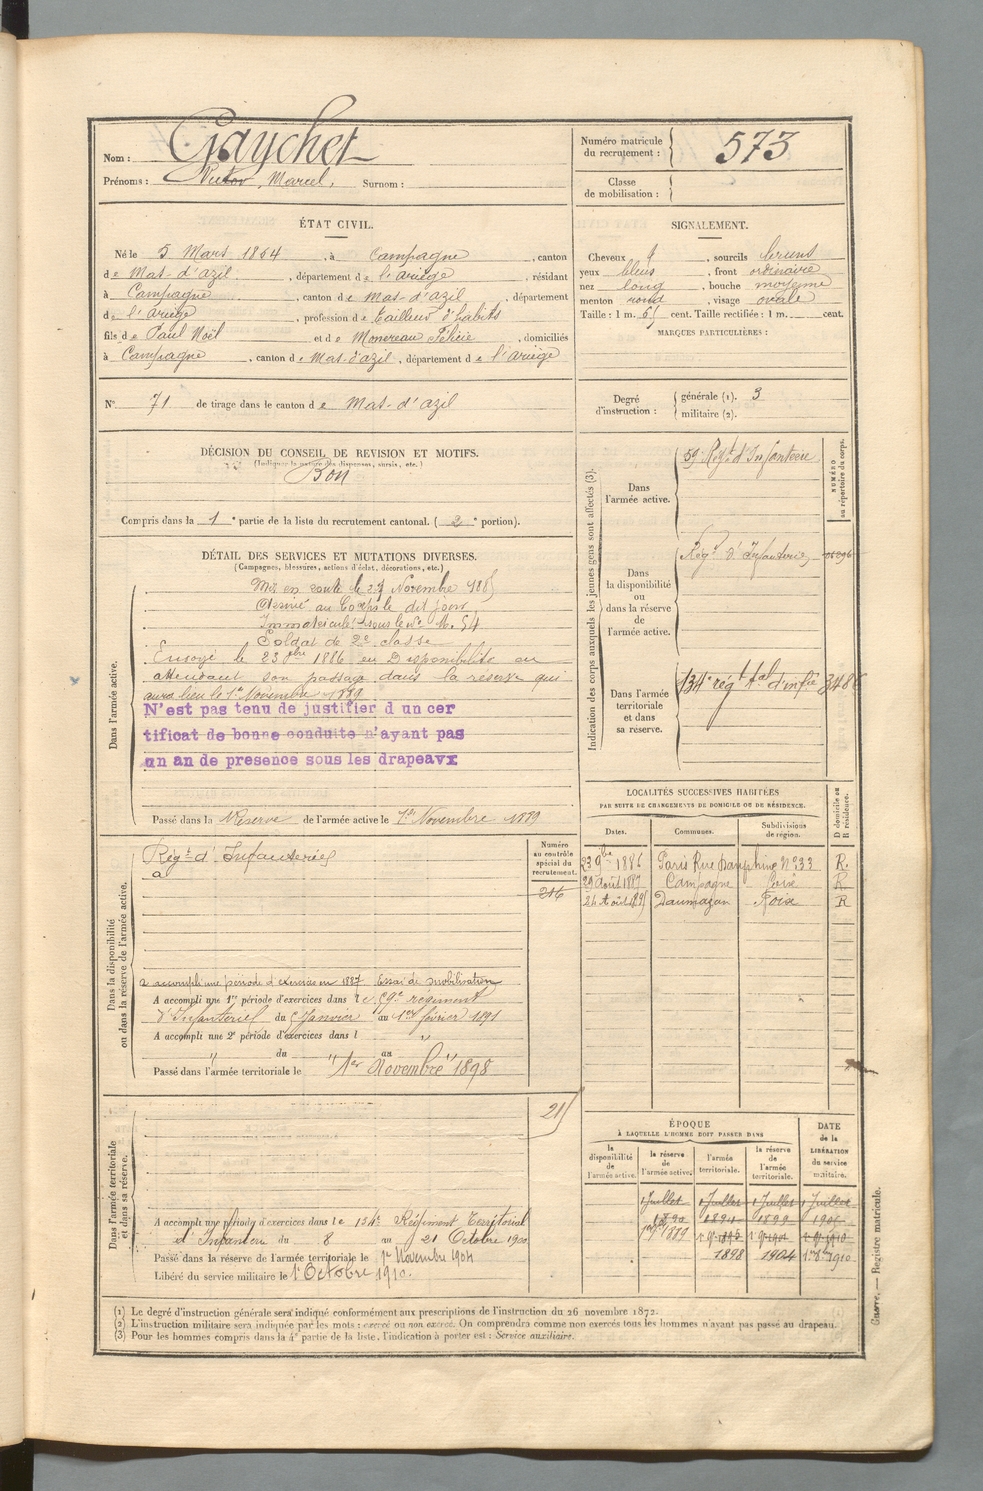 Nom : Gaychet
Prénoms : Victor, Marcel, Surnom :
Numéro matricule du recrutement : 573
Classe de mobilisation :
ÉTAT CIVIL.
Né le 5 Mars 1864, à Campagne, canton
de Mas-d'azil, département de l'ariège, résidant
à Campagne, canton de Mas-d'azil, département
de l'ariège, profession de tailleur d'habits
fils de Paul Noël et de Monereau Félicie, domiciliés
à Campagne, canton de Mas-d'azil, département de l'ariège
N° 71 de tirage dans le canton de Mas-d'azil
SIGNALEMENT.
Cheveux , sourcils bruns
yeux bleus, front ordinaire
nez long, bouche moyenne
menton rond, visage ovale
Taille : 1 m. cent. Taille rectifiée : 1 m. cent.
MARQUES PARTICULIÈRES :
Degré d'instruction : générale (1). 3
militaire (2).
DÉCISION DU CONSEIL DE REVISION ET MOTIFS.
(Indiquer la nature des dispenses, sursis, etc.)
Bon
Compris dans la 1e partie de la liste du recrutement cantonal. (2e portion).
DÉTAIL DES SERVICES ET MUTATIONS DIVERSES.
(Campagnes, blessures, actions d'éclat, décorations, etc.)
Dans l'armée active.
Mis en route le Novembre 1885
Arrivé au Corps le dit jour,
Immatriculé sous le N°
Soldat de 2e classe
Envoyé le 23 9bre 1886 en Disponibilité en
attendant son passage dans la réserve qui
aura lieu le 1er Novembre 1889
N'est pas tenu de justifier d un cer
tificat de bonne conduite n'ayant pas
un an de presence sous les drapeaux
Passé dans la Réserve de l'armée active le 1er Novembre 1889
Indication des corps auxquels les jeunes gens sont affectés (3).
NUMÉRO au répertoire du corps.
Dans l'armée active. 59e Régt d'Infanterie
Dans la disponibilité ou dans la réserve de l'armée active. Régt d'Infanterie
Dans l'armée territoriale et dans sa réserve. 134e régt tal d'infie
LOCALITÉS SUCCESSIVES HABITÉES
PAR SUITE DE CHANGEMENTS DE DOMICILE OU DE RÉSIDENCE.
Dates. Communes. Subdivisions de région. D domicile ou R résidence.
23 9bre 1886 Paris Rue Dauphine N°33 R.
29 Août 1887 Campagne Foix R
Daumazan Foix R
Dans la disponibilité ou dans la réserve de l'armée active.
Numéro au contrôle spécial du recrutement.
Régt d'Infanterie
à
216
a accompli une période d'exercices en 1887 Essai de mobilisation
A accompli une 1re période d'exercices dans le 59e régiment
d'Infanterie du Janvier au 1er février 1891
A accompli une 2e période d'exercices dans l
" du " au "
Passé dans l'armée territoriale le 1er Novembre 1898
Dans l'armée territoriale et dans sa réserve.
A accompli une période d'exercices dans le 134e Régiment Territorial
d'Infanterie du 8 au 21 Octobre 1900
Passé dans la réserve de l'armée territoriale le 1er Novembre 1904
Libéré du service militaire le 1er Octobre 1910.
ÉPOQUE
À LAQUELLE L'HOMME DOIT PASSER DANS
DATE de la LIBÉRATION du service militaire.
la disponibilité de l'armée active. la réserve de l'armée active. l'armée territoriale. la réserve de l'armée territoriale.
1 Juillet 1 Juillet 1 Juillet 1 Juillet
1890 1899
1er 9bre 1889
1898 1904 1910
(1) Le degré d'instruction générale sera indiqué conformément aux prescriptions de l'instruction du 26 novembre 1872.
(2) L'instruction militaire sera indiquée par les mots : exercé ou non exercé. On comprendra comme non exercés tous les hommes n'ayant pas passé au drapeau.
(3) Pour les hommes compris dans la 4e partie de la liste, l'indication à porter est : Service auxiliaire.
Guerre. — Registre matricule.